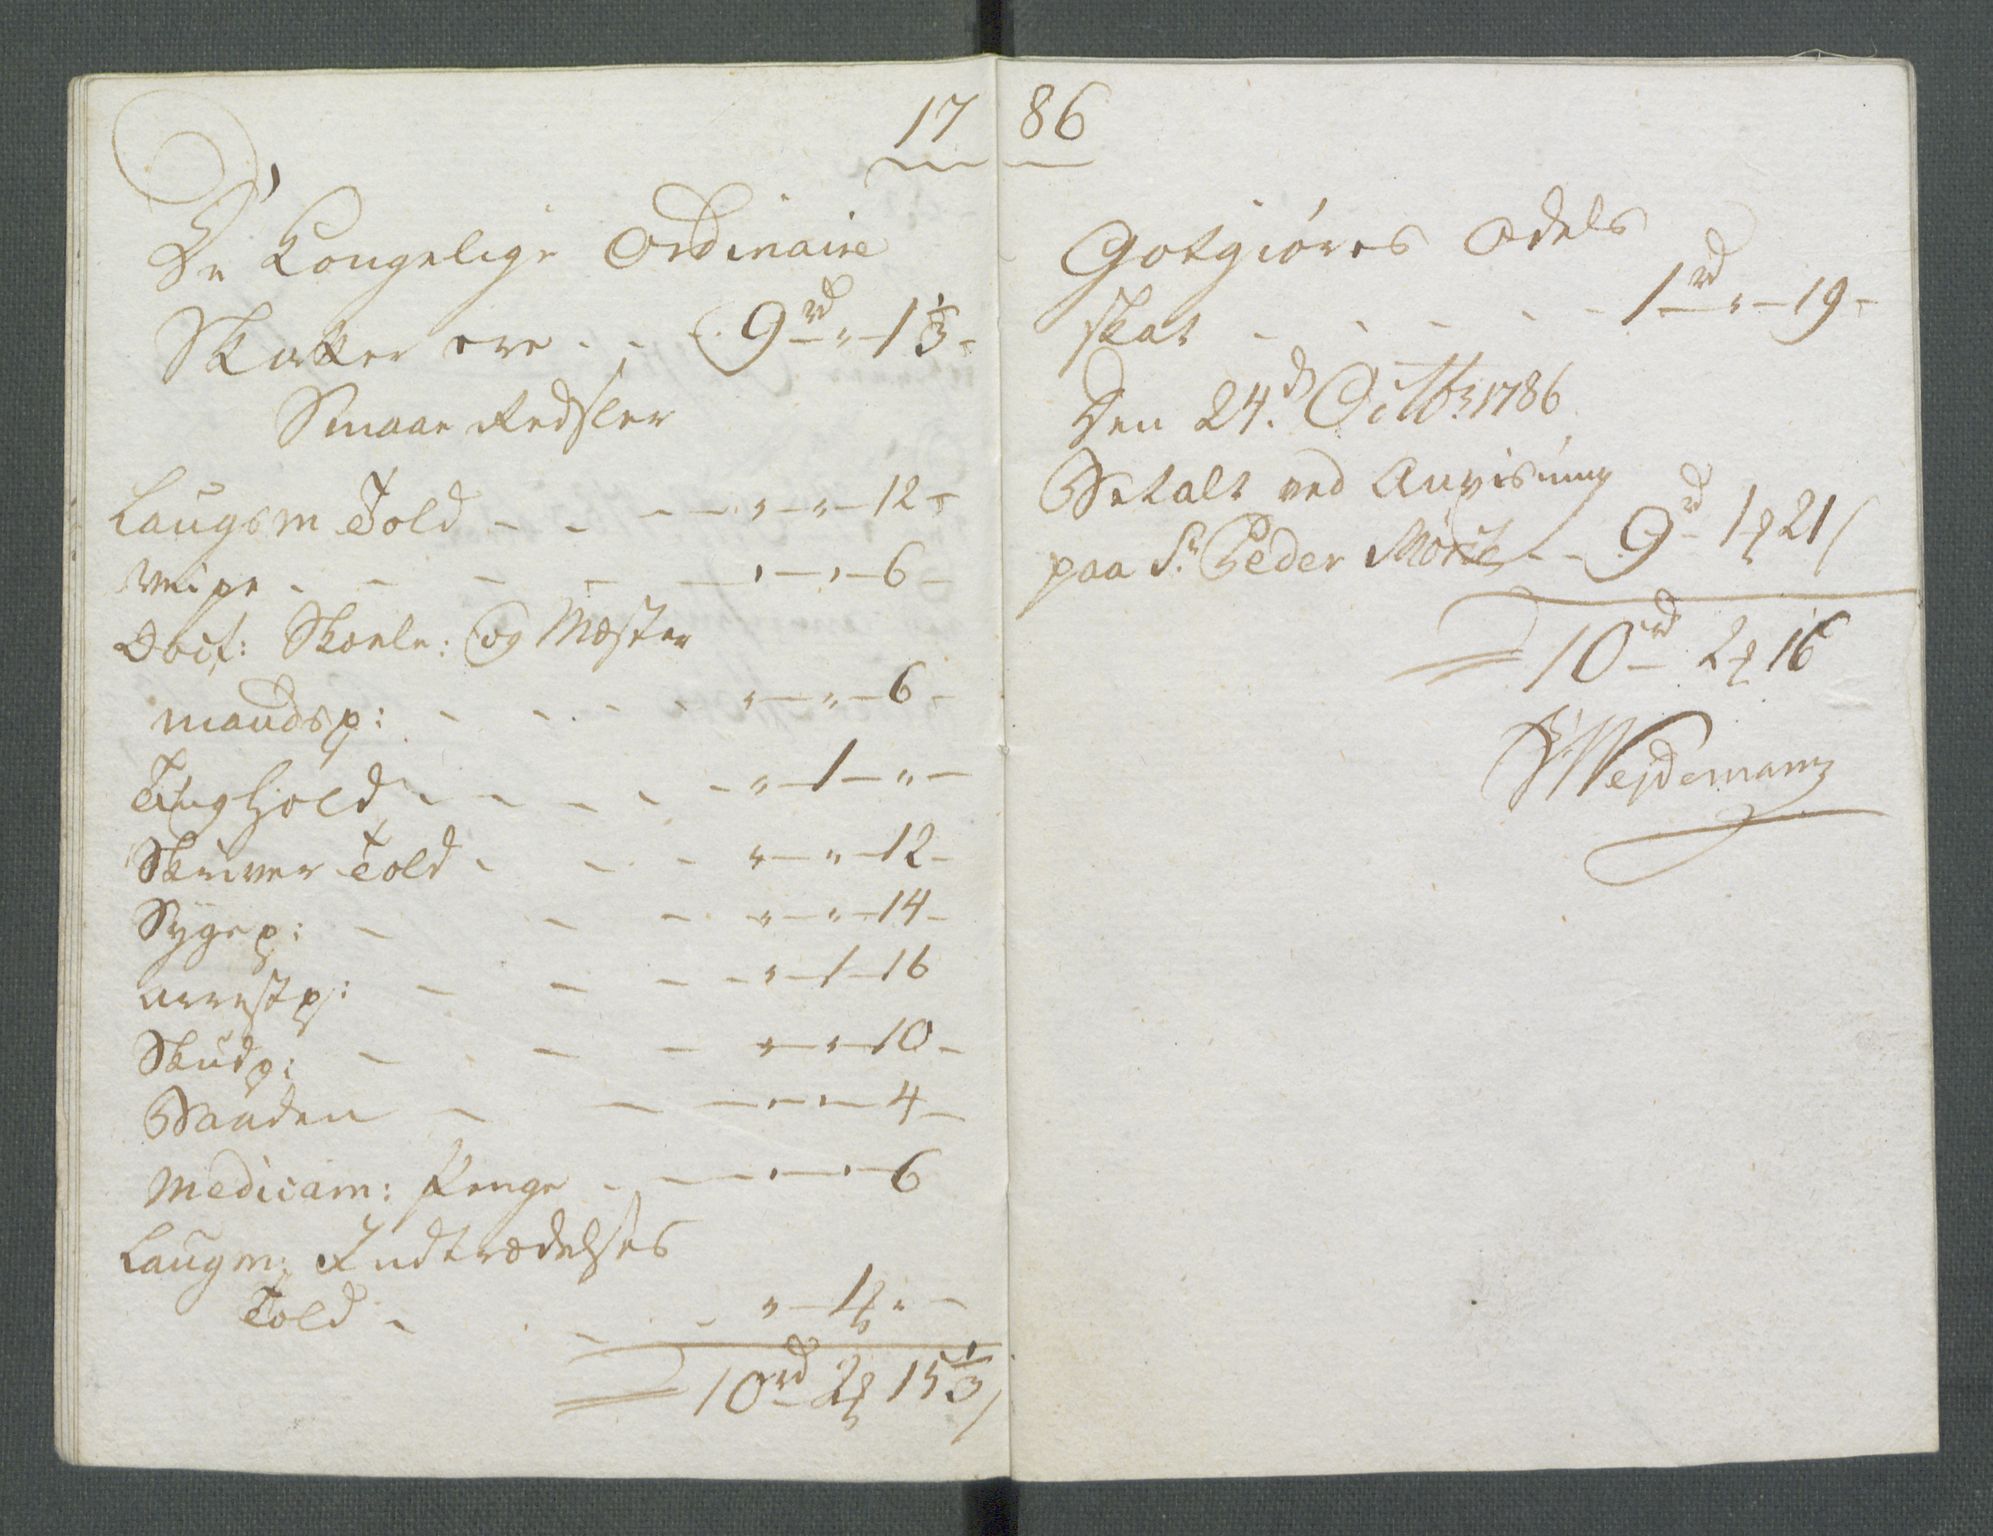 1786
De Kongelige Ordinaire
Skatter ere - - 9rd " 1 1/3 -
Smaae Redsler
Laugsm Told - - - - " - " - 12 -
Veipe - - - - - " - " - 6 -
Doct: Skoele: og Mæster
mandsp: - - - - " - " - 6 -
Tinghold - - - - - " - 1 - " -
Skriver Told - - - " - " - 12 -
Sygep: - - - " - " - 14 -
Arrestp: - - - - " - 1 - 16
Skudp: - - - - " - " - 10 -
Baaden - - - " - " - 4 -
Medicam: Penge - - - " - " - 6
Laugm: Indtrædelses
Told - - - " - 1 " -
10rd 2 15 1/3
Gotgiøres Odels
skat - - - - - 1rd " - 19 -
Den 24d Octbr 1786
Betalt ved Anvisning
paa Sr. Peder - - 9rd 1 21
10rd 2 16
Wejdemann